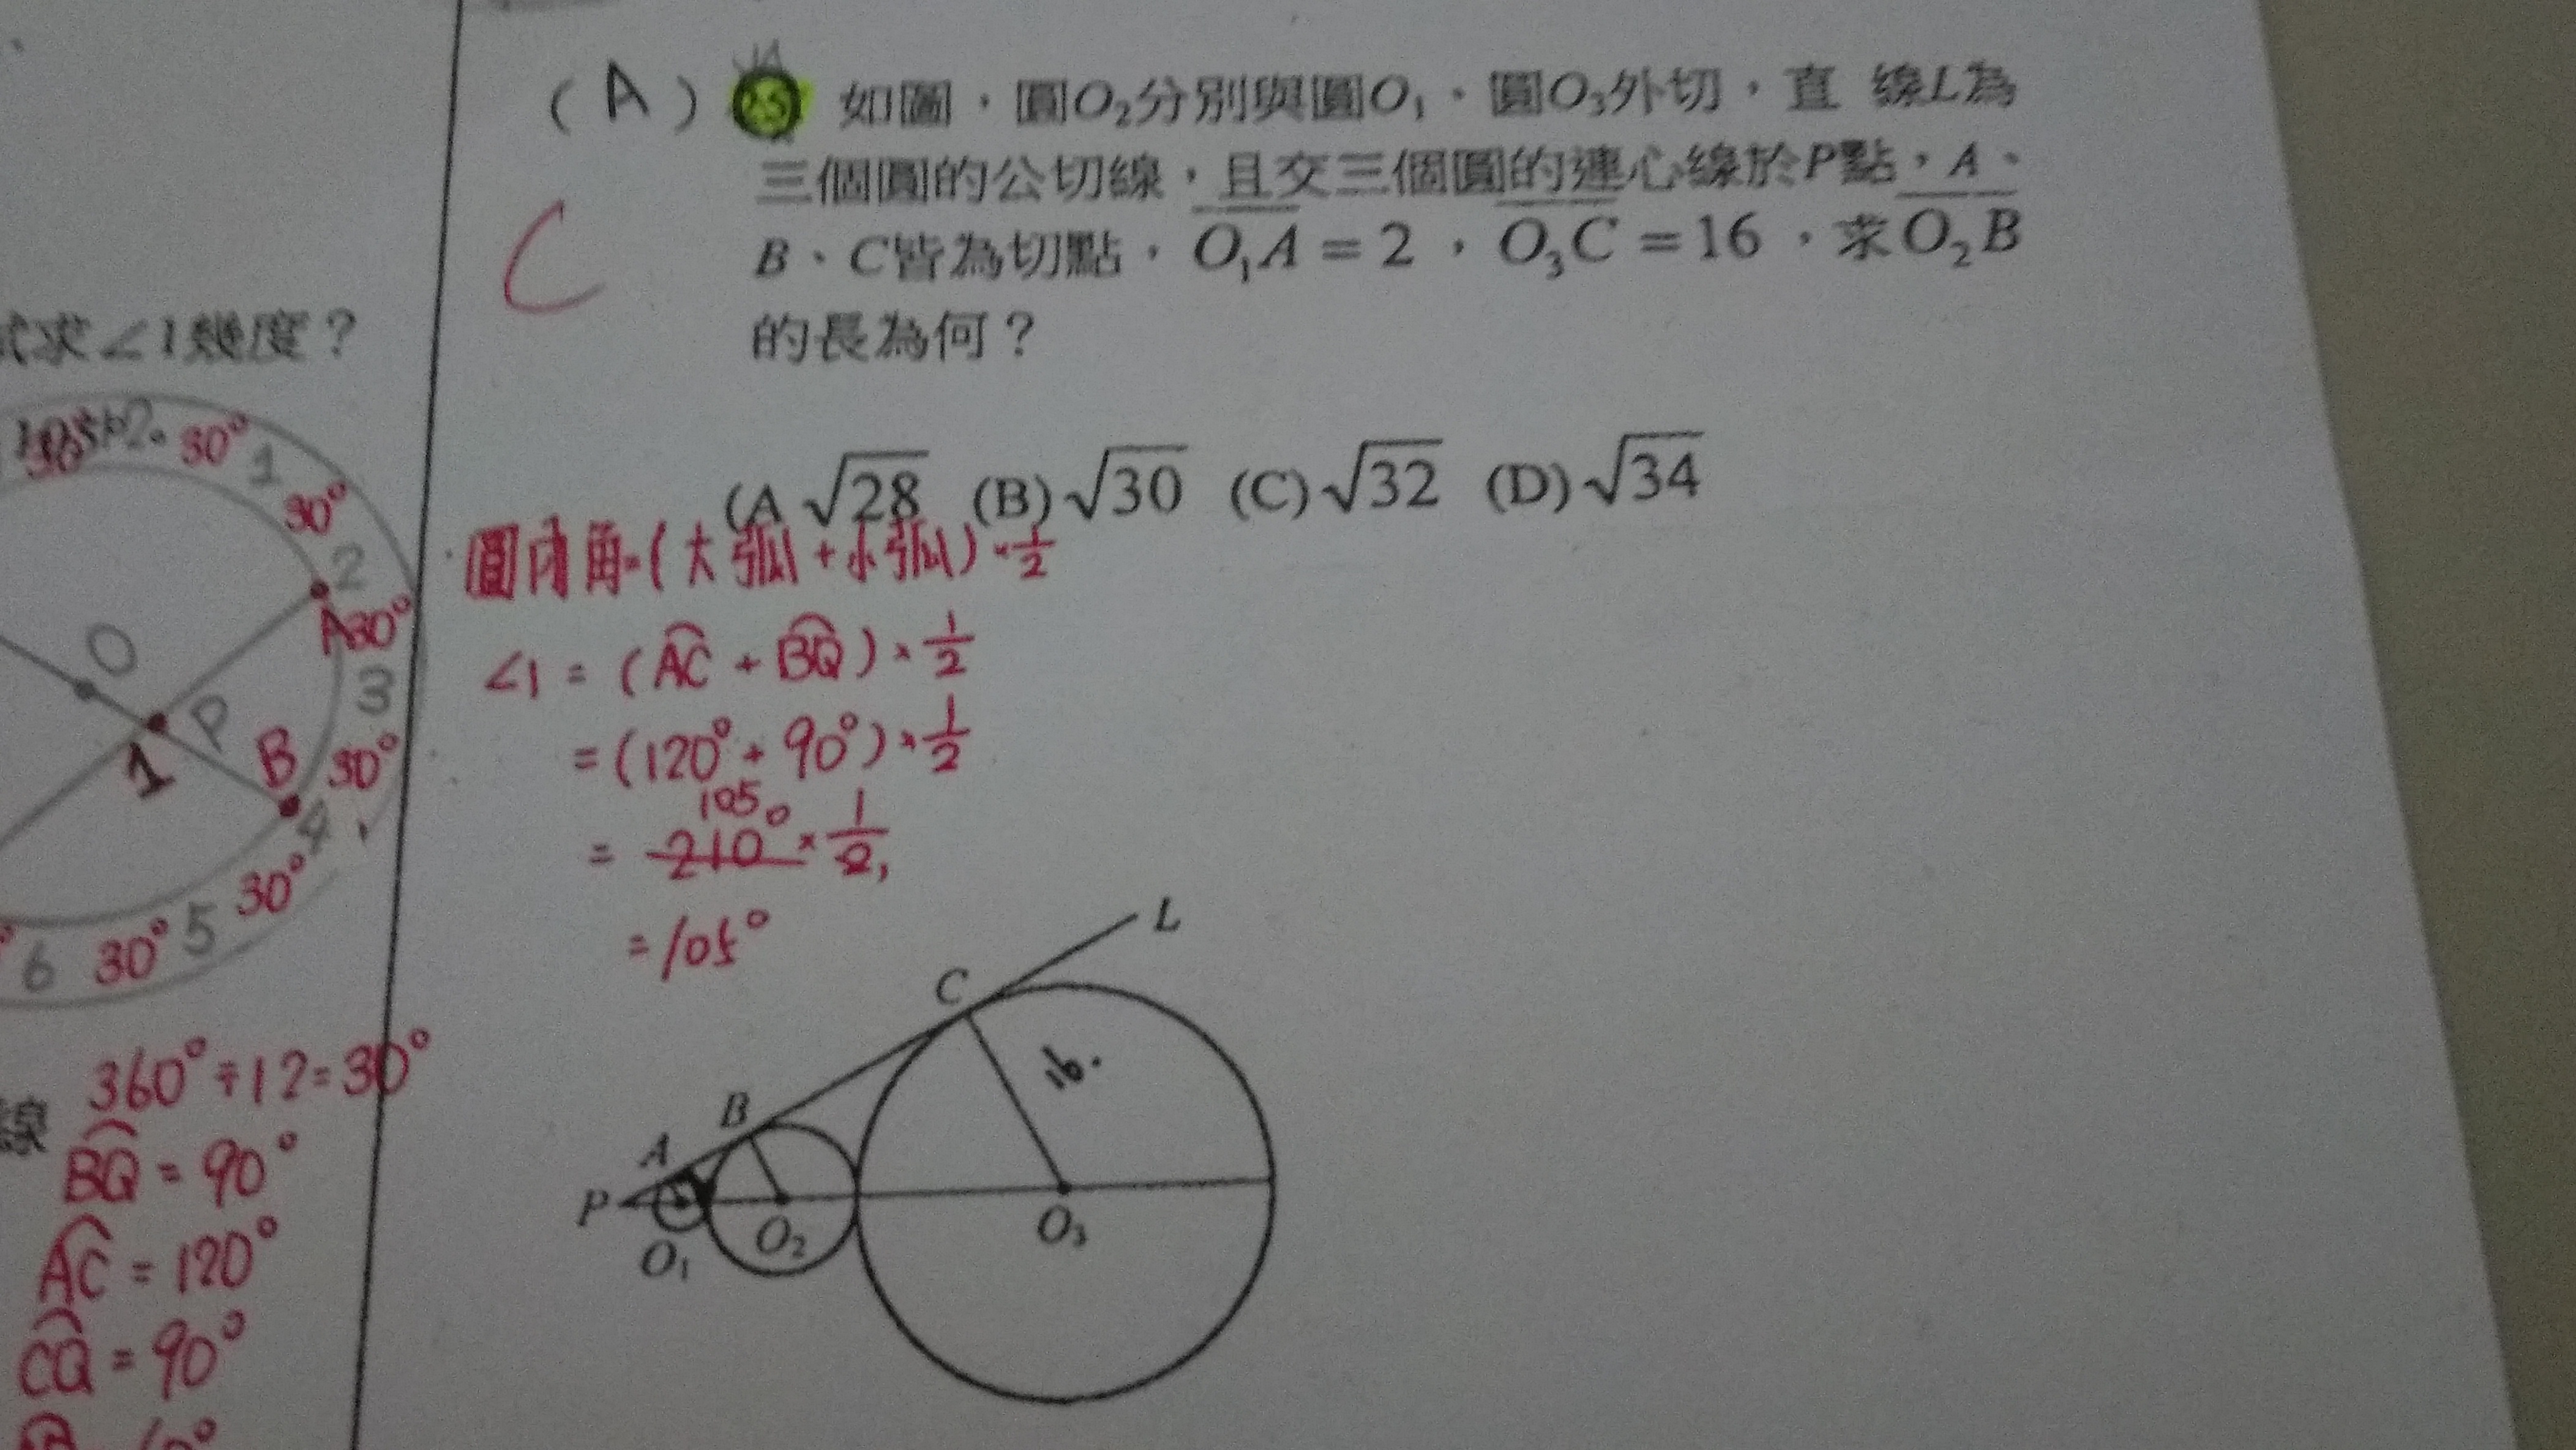 (A) 25 如圖，圓O₂分別與圓O₁、圓O₃外切，直 線L為
三個圓的公切線，且交三個圓的連心線於P點，A、
B、C皆為切點，O₁A = 2，O₃C = 16，求O₂B
的長為何？
C
(A √28 (B)√30 (C)√32 (D)√34
圓內角=(大弧+小弧)×1/2
∠1 = (AC + BQ)×1/2
=(120°+90°)×1/2
105
= 210°×1/2 1
=105°
L
C
16.
B
A
P
O₁
O₂
O₃
試求∠1幾度？
30° 1
30°
2
A 30°
3
O
P
1
B 30°
4
30°
5
30°
6
360°÷12=30°
線
BQ = 90°
AC = 120°
CQ = 90°